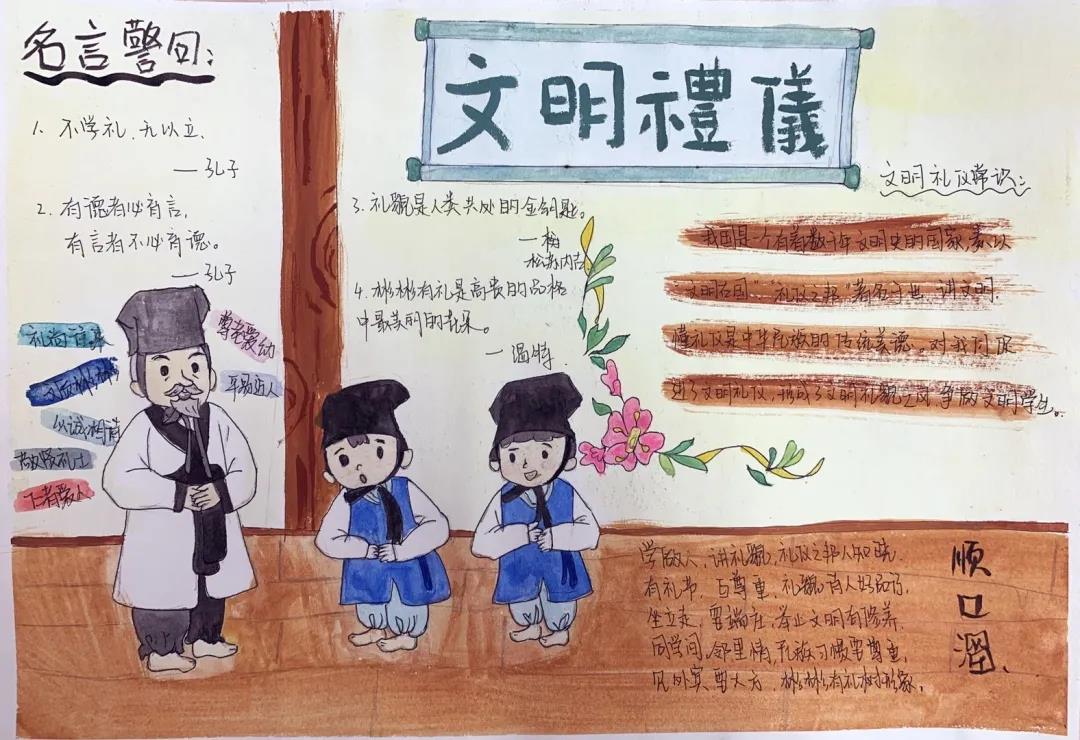 名言警句:
1. 不学礼,无以立.
——孔子
2. 有德者必有言,
有言者不必有德。
——孔子
文明禮儀
3. 礼貌是人类共处的金钥匙。
—
松苏内吉
4. 彬彬有礼是高贵的品格
中最美丽的花朵。
—温特.
文明礼仪常识:
我国是一个有着数千年文明史的国家,素以
"文明古国""礼仪之邦"著名于世.讲文明.
懂礼仪是中华民族的传统美德。对我们
进了文明礼仪,形成了文明礼貌之风争做文明学生。
礼尚往来
尊老爱幼
平易近人
以诚相待
敬贤礼士
仁者爱人
学做人,讲礼貌,礼仪之邦人知晓.
有礼节,互尊重,礼貌待人好品行,
坐立走,要端庄,举止文明有修养,
同学间,邻里情,民族习惯要尊重,
见外宾,要大方,彬彬有礼树形象,
顺口溜.